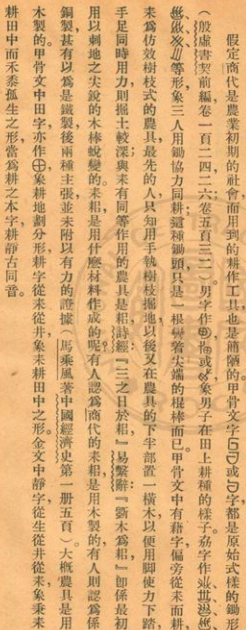 假定商代是農業初期的社會而用到的耕作工具也是簡陋的甲骨文字或字都是原始式樣的鋤形
（殷虛書契前編卷一百二四二六卷五百三三）男字作或或象男子在田上耕種的樣子劦字作
等形象三人用鋤協力同耕這種鋤頭只是一根彎着尖端的棍棒而已甲骨文中有藉字偏旁從耒而耕
來爲仿效樹枝式的農具最先的人只知用手執樹枝掘地以後又在農具的下半部置一橫木以便用脚使力下踏
手足同時用力則掘土較深與耒有同等作用的農具是耜詩經『三之日於耜』易繫辭『斲木爲耜』卽係最初
用以刺地之尖銳的木棒蛻變的耒耜是用什麽材料作成的呢有人認爲商代的耒耜是用木製的有人則認爲係
銅製甚有以爲是鐵製後兩種主張並未附以有力的證據（馬乘風著中國經濟史第一册五頁）大槪農具是用
木製的甲骨文中田字亦作象耕地劃分形耕字從耒從井象耒耕田中之形金文中靜字從生從井從耒象秉耒
耕田中而禾黍孤生之形當爲耕之本字耕靜古同音